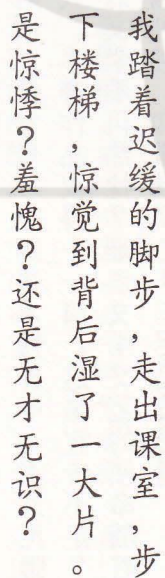 我踏着迟缓的脚步，走出课室，步
下楼梯，惊觉到背后湿了一大片。
是惊悸？羞愧？还是无才无识？